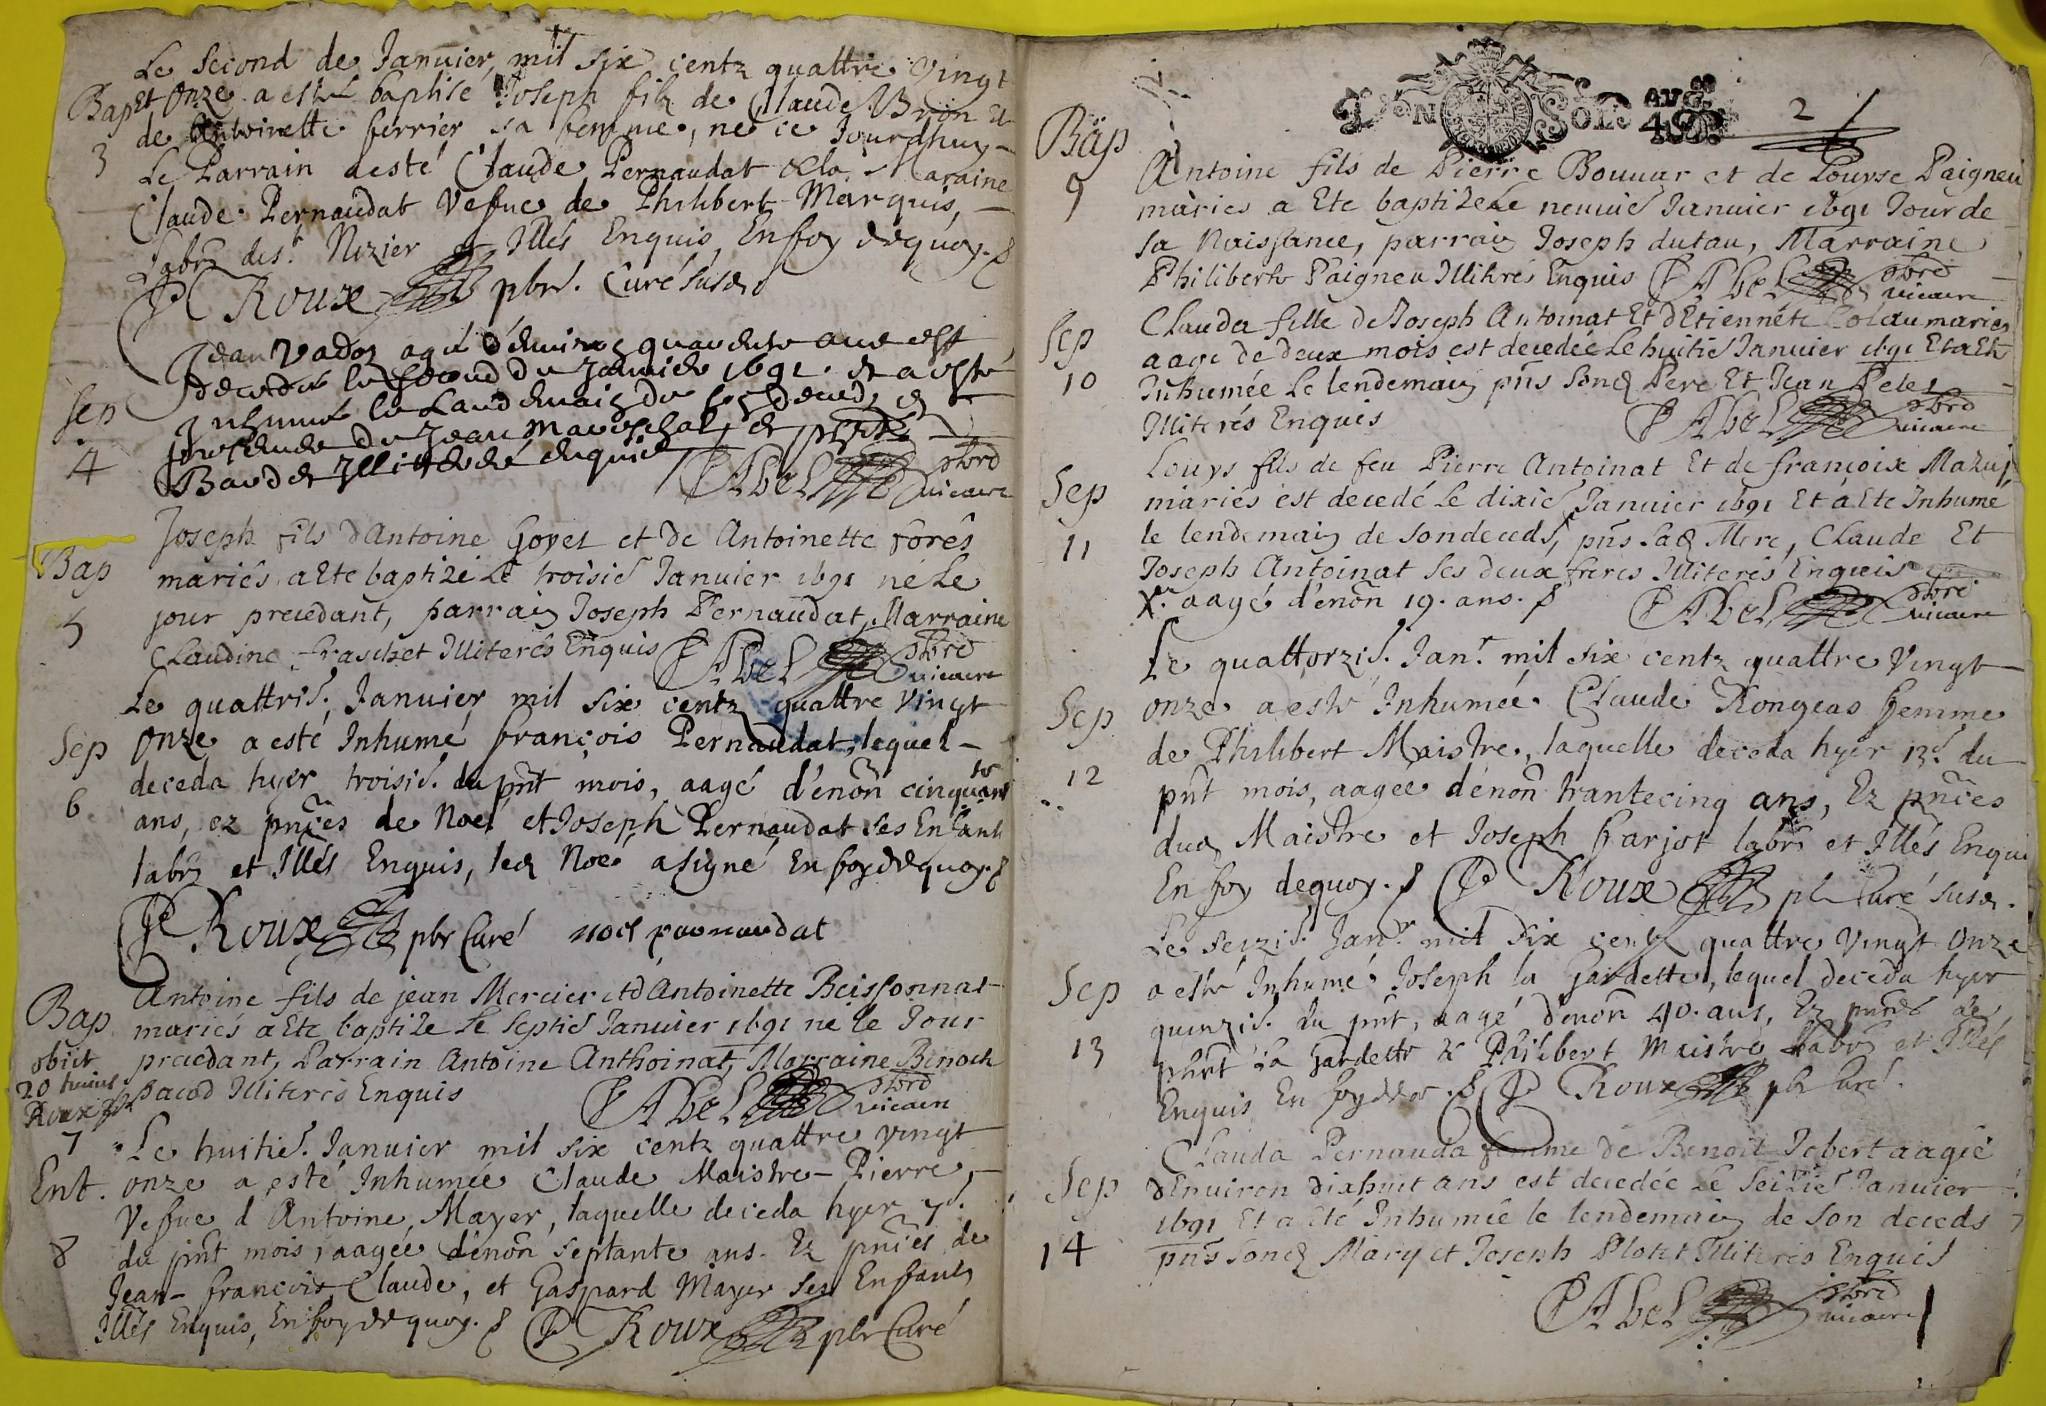 Le second de Janvier, mil six centz quattre vingt
Bap et Onze a esté baptisé Joseph filz de Claude Brion et
de Antoinette ferrier sa femme, né ce Jourdhuy
3 Le Parrain a esté Claude Pernaudat & la Maraine
Claude Pernaudat Vefue de Philibert Marquis,
labrs de st. Nizier et Illés Enquis, En foy dequoy.
P Roux pbr. Curé susd
Jean Vadon agé d'énuiron quarente ans est
decedé le second du Januier 1691. et a esté
Sep Inhumé le Landemain de son deced, en
presence de Jean mareschal, et
4 Baudet Illitterés enquis P Abel pbre vicaire
Joseph fils d'Antoine Goyet et de Antoinette forés
Bap mariés a Ete baptizé Le troisie Januier 1691 né Le
5 jour precedant, parrain Joseph Pernaudat, Marraine
Claudine fraschet Illiterés Enquis P Abel pbre vicaire
Le quattris. Januier mil six centz quattre vingt
Sep Onze a esté Inhumé françois Pernaudat, lequel
deceda hyer troisie. du pnt mois, aagé d'énon cinquante
6 ans, ez pnces de Noel et Joseph Pernaudat ses Enfants
labrs et Illés Enquis, led Noel a signé En foy de quoy.
P Roux pbr Curé noel pernaudat
Antoine fils de jean Mercier et d'Antoinette Beissonnat
Bap mariés a Ete baptize Le septie Januier 1691 né le Jour
obiit precedant, Parrain Antoine Anthoinat, Marraine Benoite
20 huius pacod Illiterés Enquis P Abel pbre vicaire
Roux
7 Le huitie. Januier mil six centz quattre vingt
Ent. onze a esté Inhumée Claude Maistre-Pierre,
Vefue d'Antoine Mayer, laquelle deceda hyer 7e.
8 du pnt mois, aagée d'énon septante ans. Ez pnces de
Jean-françois, Claude, et Gaspard Mayer ses Enfants
Illés Enquis, En foy de quoy. P Roux pbr Curé
LYON SOLS AUG 2
Bap Antoine fils de Pierre Bouuar et de Louyse Paigneu
9 mariés a Ete baptizé Le neuuie Januier 1691 Jour de
sa Naissance, parrain Joseph dutau, Marraine
Philiberte Paigneu Illiterés Enquis P Abel pbre vicaire
Sep Clauda fille de Joseph Antoinat Et d'Etiennéte Colau mariés
aagé de deux mois est decedée Le huitie Januier 1691 Et a Ete
10 Inhumée Le lendemain pns sond Pere Et Jean Peles
Illiterés Enquis P Abel pbre vicaire
Louys fils de feu Pierre Antoinat Et de françoise Mazuy
Sep mariés est decedé Le dixie Januier 1691 Et a Ete Inhumé
11 le lendemain de son deceds, pns sad Mere, Claude Et
Joseph Antoinat ses deux freres Illiterés Enquis
X. aagé d'énon 19. ans. P Abel pbre vicaire
Le quattorzie. Janr. mil six centz quattre vingt
Sep onze a esté Inhumée Claude Rongeas femme
de Philibert Maistre, laquelle deceda hyer 13e. du
12 pnt mois, aagée d'énon trantecinq ans, Ez pnces
dud Maistre et Joseph farjot labrs et Illés Enquis
En foy dequoy. P Roux pbr Curé susd.
Le seizie. Janr. mil six centz quattre vingt onze
Sep a esté Inhumé Joseph la Gardette, lequel deceda hyer
quinzie. du pnt, aagé d'énon 40. ans, Ez pnces de
13 phbrt la Gardette & Philibert Maistre labrs et Illés
Enquis En foy de quoy. P Roux pbr Curé.
Clauda Pernauda femme de Benoit Jobert aagée
Sep d'Enuiron dixhuit ans est decedée Le Seizie Januier
1691 Et a Eté Inhumée le lendemain de son deceds
14 pns sond Mary et Joseph Plotet Illiterés Enquis
P Abel pbre vicaire